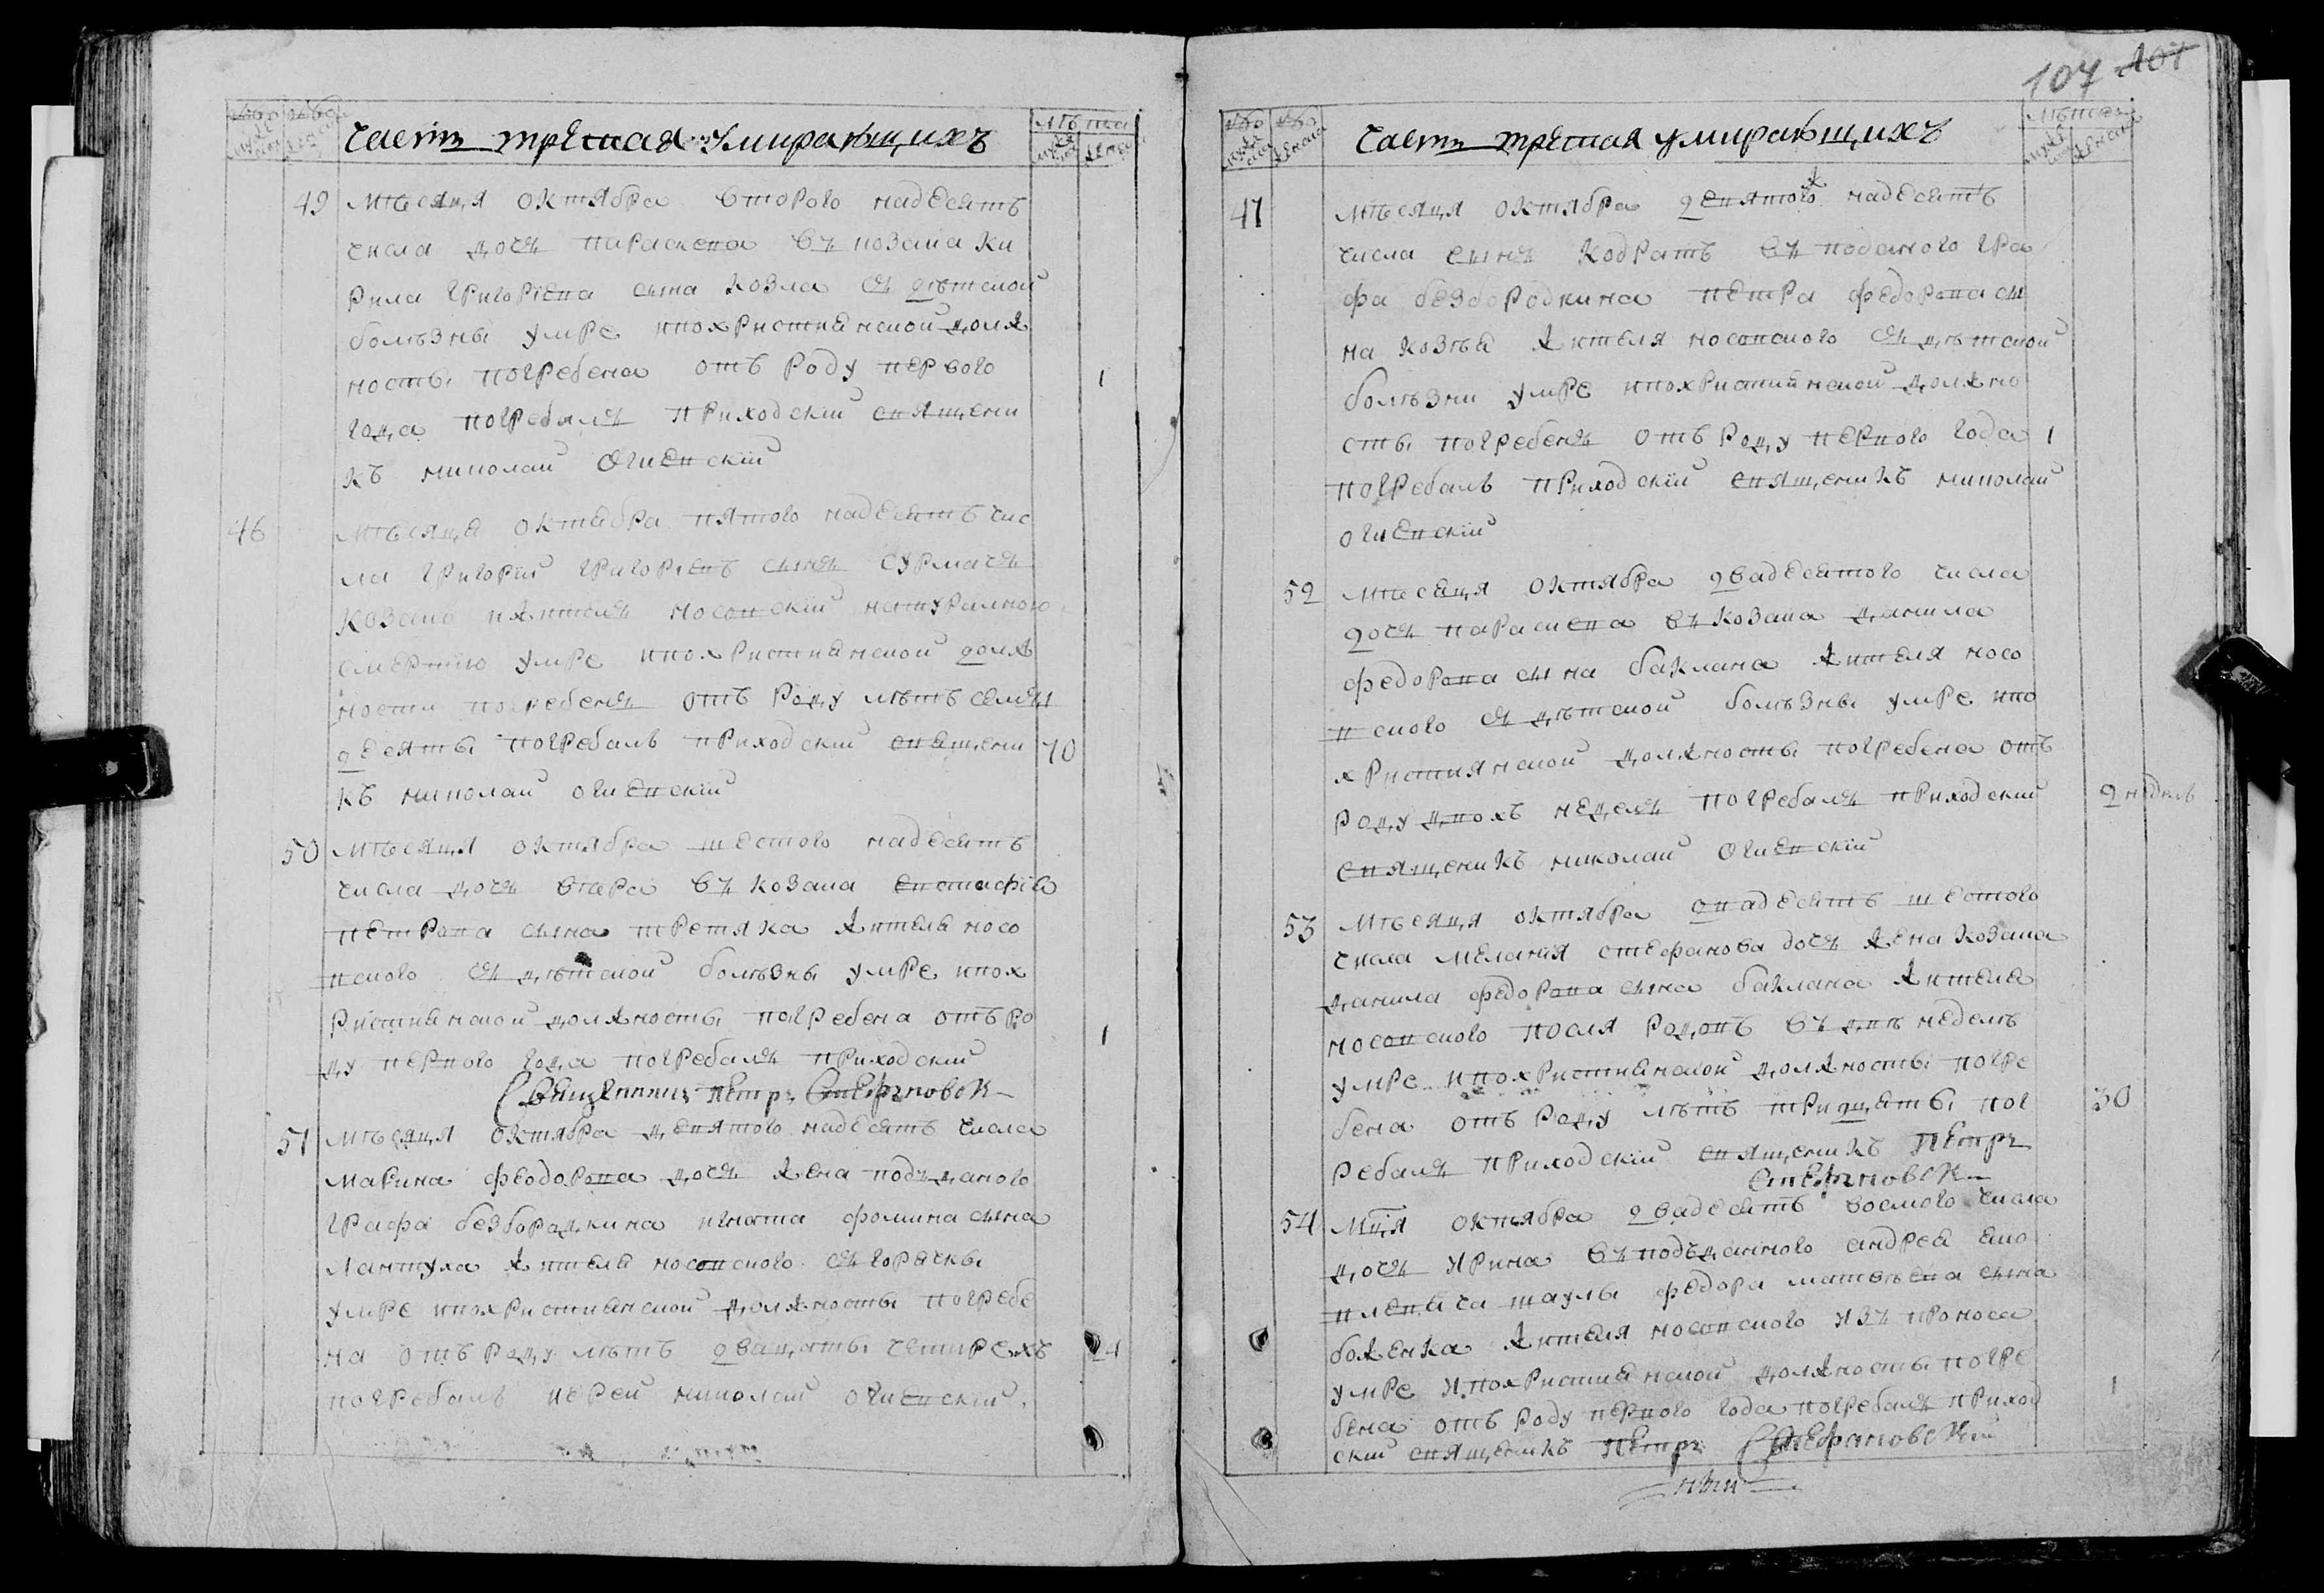 Часть третая умирающихъ
49 Мѣсяця октября второго надесять
числа дочъ параскева въ козака Ки
рила григоріева сына козла съ дѣтской
болѣзны умре ипохристиянской долж
носты погребена отъ роду первого
года погребалъ приходскій священи 1
къ николай Огиевскій
46 мѣсяця октября пятого надесять чис
ла григорій григоріевъ сынъ сурмачъ
козакъ и житель носовскій натуралною
смертію умре ипохристиянской долж
ности погребенъ отъ роду лѣтъ семъ
десяты погребалъ приходскій священи 70
къ николай огиевскій
50 мѣсяця октября шестого надесять
числа дочъ въ козака евстафія
петрова сына третяка жителя носо
вского съ дѣтской болѣзны умре ипох
ристиянской должносты погребена отъ ро
ду первого года погребалъ приходскій 1
Священникъ Петръ Стефановск
51 мѣсяця октября девятого надесять числа
марина феодорова дочъ жена подъданого
графа безбородкина игната фомина сына
жителя носовского съ горячкы
умре ипохристиянской должносты погребе
на отъ роду лѣтъ двацяты четирехъ 24
погребалъ иерей николай огиевскій.
107 107
Часть третая умирающихъ
47 мѣсяця октября девятого надесять
числа сынъ Кодратъ въ поданого гра
фа безбородкина петра федорова сы
на козѣя жителя носовского съ дѣтской
болѣзни умре ипохристийнской должно
сты погребенъ отъ роду первого года 1
погребалъ приходскій священикъ николай
огиевскій
52 мѣсяця октября двадесятого числа
дочъ параскева въ козака данила
федорова сына баклана жителя носо
вского съ дѣтской болѣзны умре ипо
християнской должносты погребена отъ
роду двохъ неделъ погребалъ приходский 2 недѣль
священикъ николай огиевскій
53 мѣсяця октября двадесять шестого
числа мелания стефанова дочъ жена козака
данила федорова сына баклана жителя
носовского посля родовъ въ двѣ неделѣ
умре ипохристиянской должносты погре
бена отъ роду лѣтъ тридцяты пог 30
ребалъ приходскій священикъ Петръ
Стефановск
54 Мця октября двадесять восмого числа
дочъ ирина въ подъданного андрея яко
влевича федора матвѣева сына
боженка жителя носовского изъ проноса
умре ипохристиянской должносты погре
бена отъ роду первого года погребалъ приход 1
скій священикъ Петръ Стефановскій